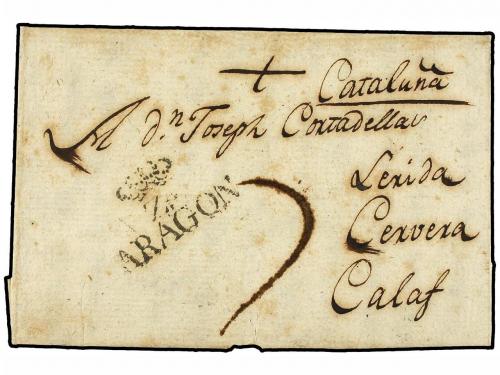 + Cataluña
A dn Joseph Cortadellas
Lerida
Cervera
Calaf
Za
ARAGON
7